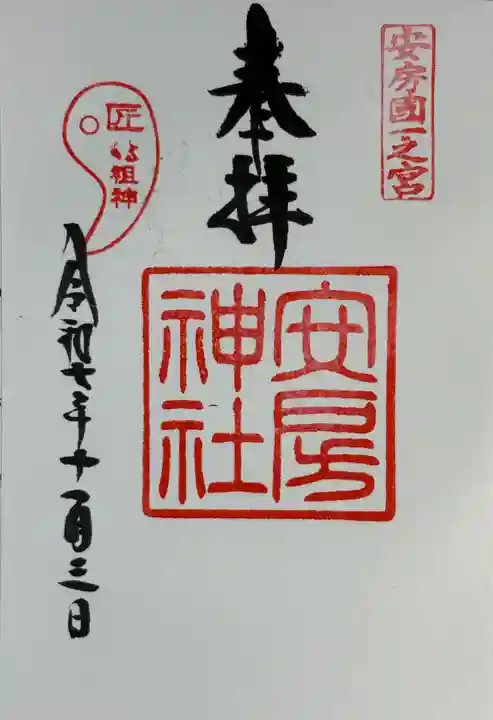 安房國一之宮
奉拝
安房
神社
匠
の祖神
令和七年十一月三日